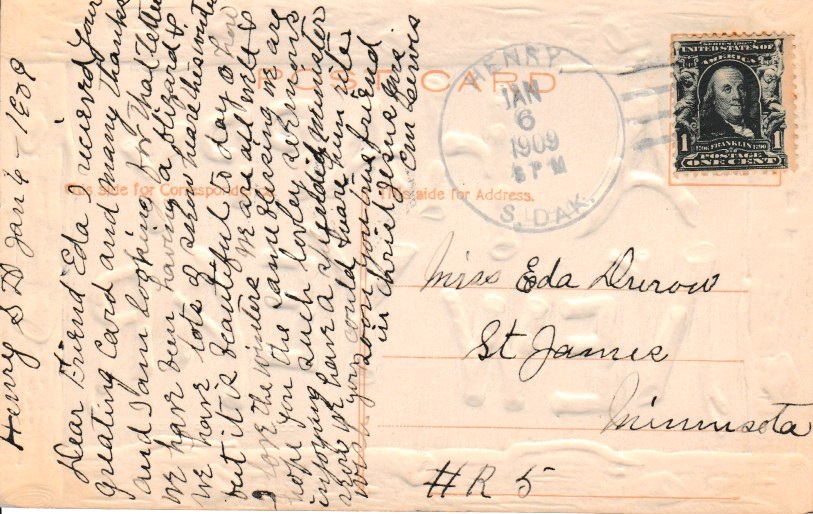 Henry S D Jan 6 - 1909
Dear Friend Eda I recieved your
greating card and many thanks
and I am looking for that letter
we have been having a blizard &
we have lots of snow heare this winter
but it is beautiful to day
I love the winters we are all well &
hope you the same Blessing we are
injoying such lovley sermons
we have a splendid minister
wish you could heare him
your true friend
in christ Jesus Mrs
Em Lewis
POST CARD
This side for Correspondence.
This side for Address.
HENRY,
JAN
6
1909
S. DAK.
SERIES 1902
UNITED STATES OF
AMERICA
1 1
1706 FRANKLIN 1790
POSTAGE
ONE CENT
Miss Eda Durow
St James
Minnisota
#R 5